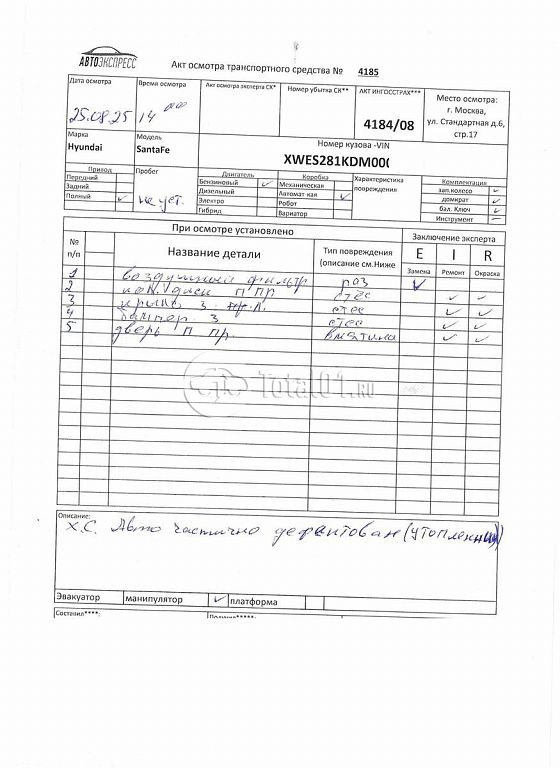 АВТОЭКСПРЕСС
Акт осмотра транспортного средства № 4185
Дата осмотра
Время осмотра
Акт осмотра эксперта СК*
Номер убытка СК**
АКТ ИНГОССТРАХ***
Место осмотра:
г. Москва,
ул. Стандартная д.6,
стр.17
25.08.25
14 00
4184/08
Марка
Модель
Номер кузова -VIN
Hyundai
SantaFe
XWES281KDM00
Привод
Пробег
Двигатель
Коробка
Характеристика
повреждения
Комплектация
Передний
Бензиновый
Механическая
зап.колесо
Задний
Дизельный
Автомат-кая
домкрат
Полный
не уст.
Электро
Робот
бал. Ключ
Гибрид
Вариатор
Инструмент
При осмотре установлено
Заключение эксперта
№
п/п
Название детали
Тип повреждения
(описание см.Ниже
E
I
R
Замена
Ремонт
Окраска
1 воздушный фильтр раз
2 диск п пр стес
3 крыло з. л. стес
4 бампер з стес
5 дверь п пр. вмятина
Total01.RU
Описание:
Х.С. Авто частично дефектован (утопленник)
Эвакуатор
манипулятор
платформа
Составил****: